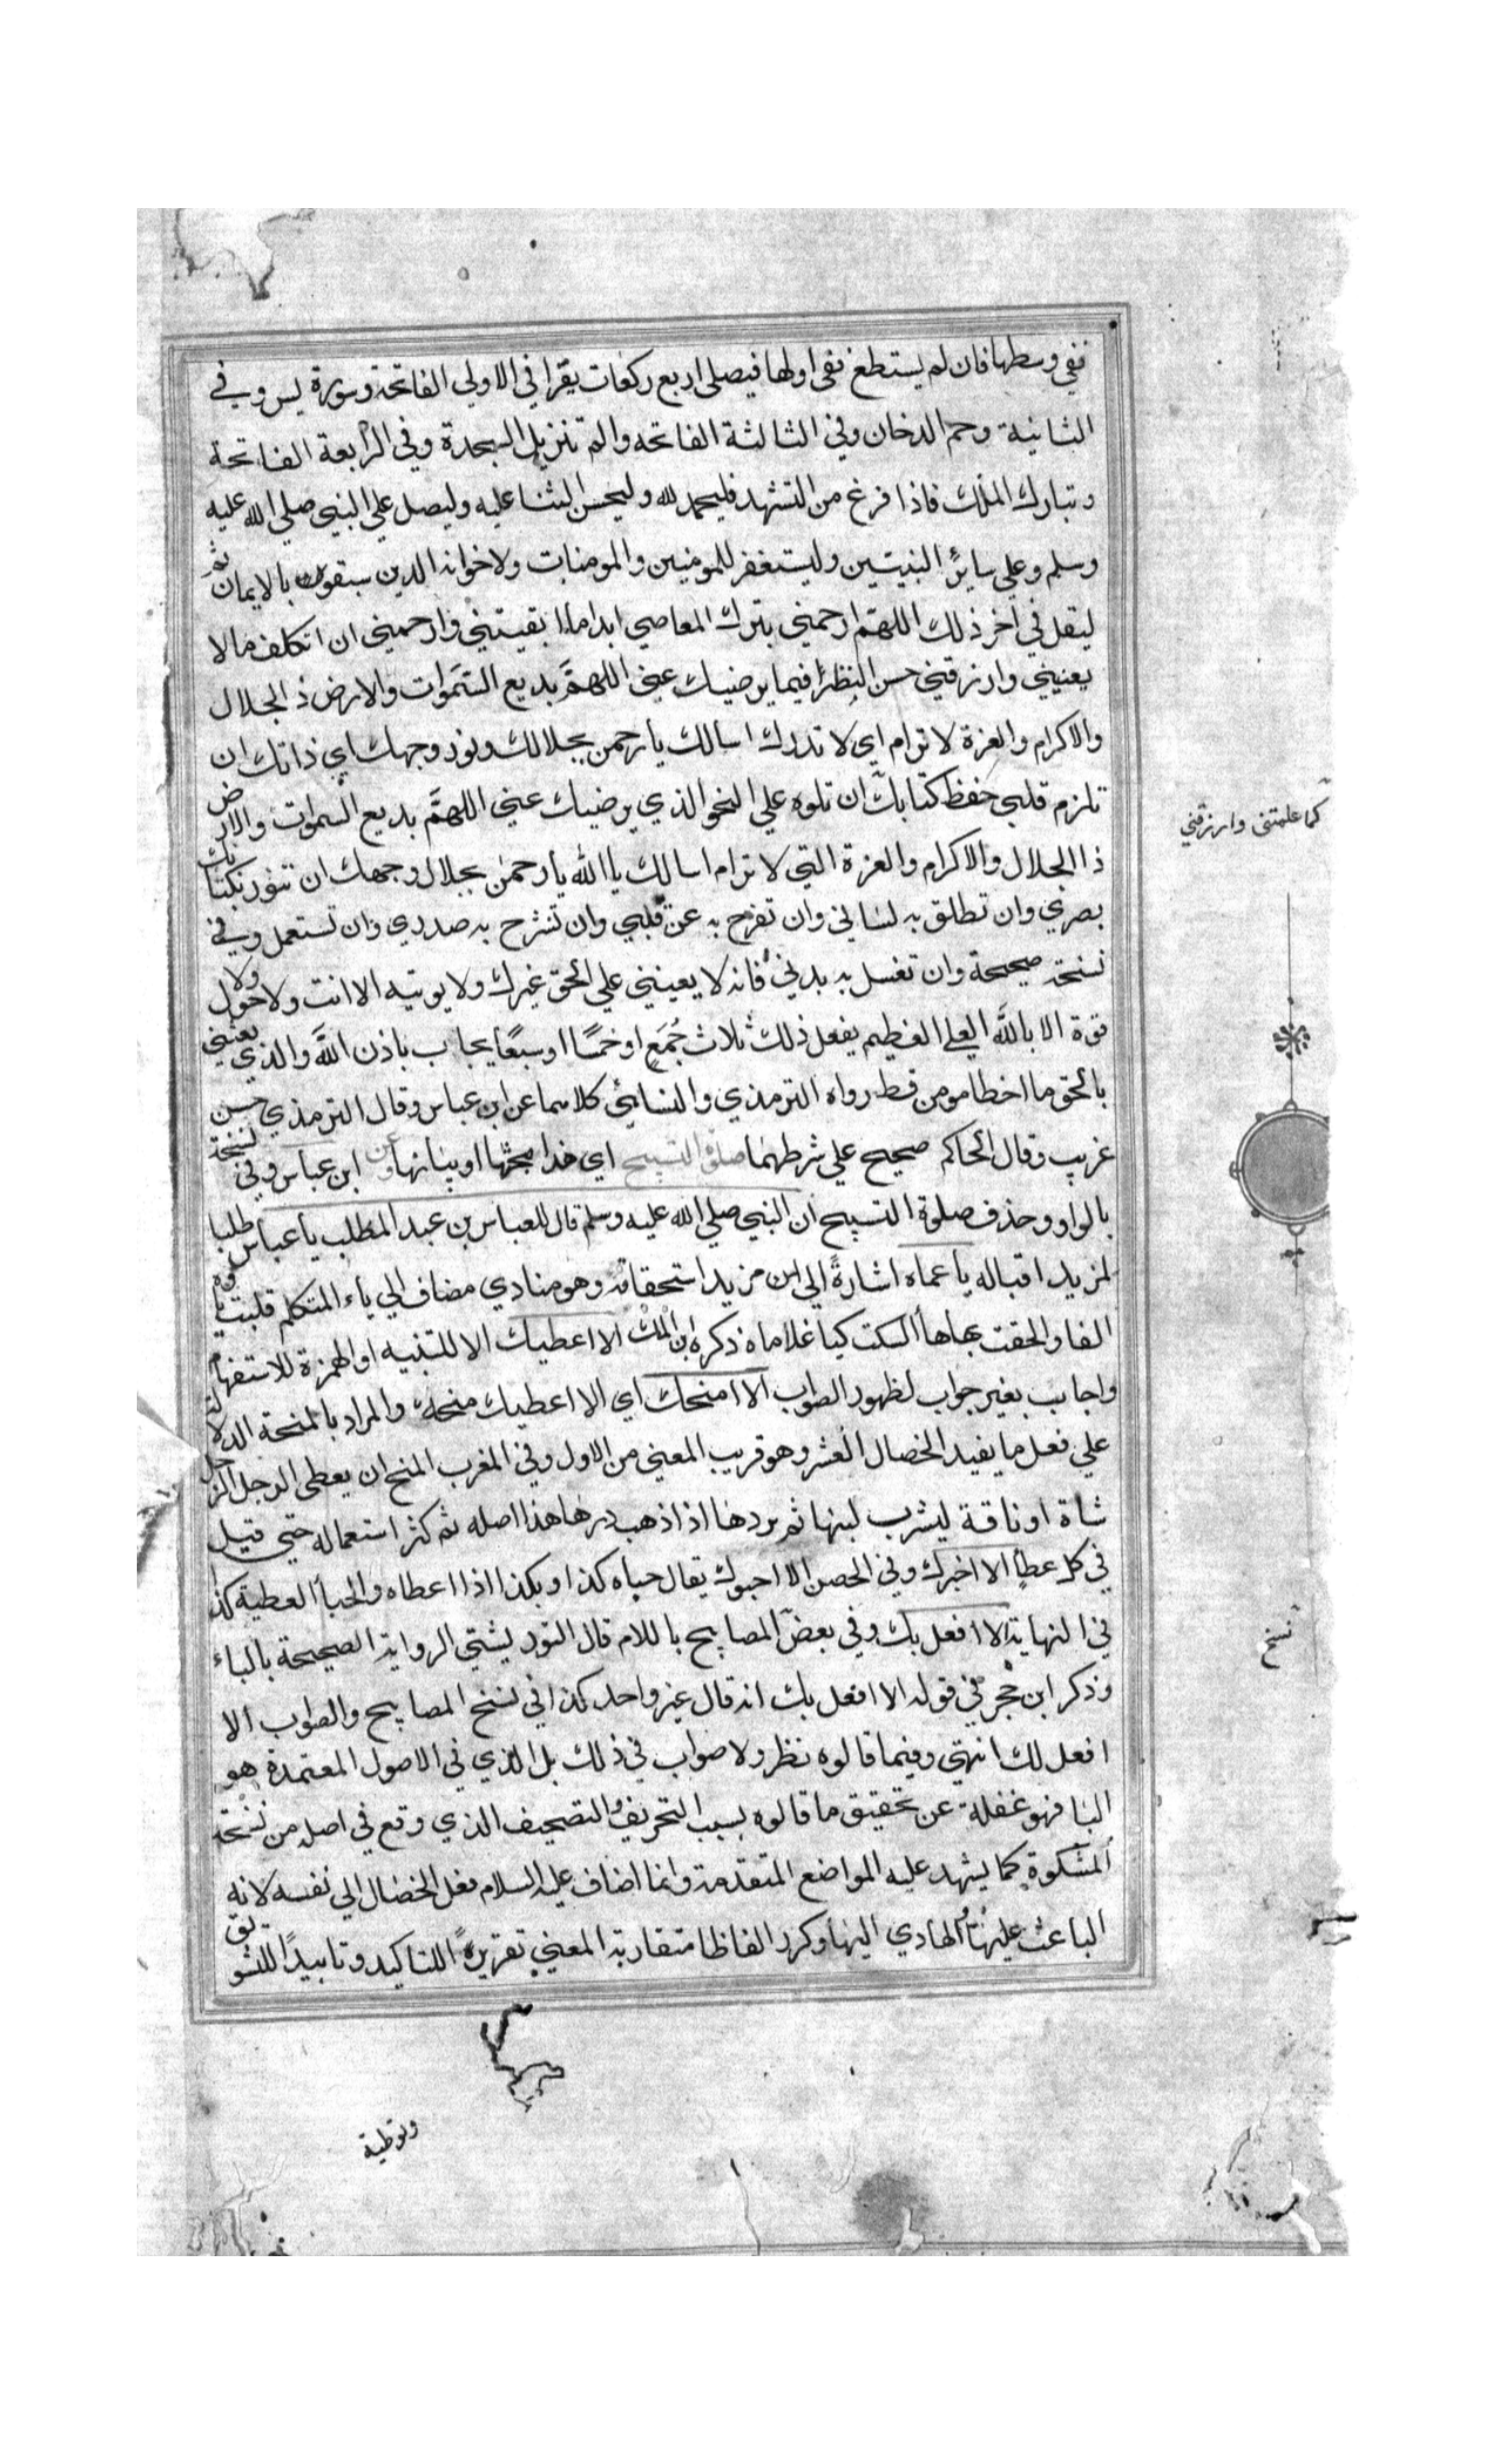 ففي وسطها فان لم يستطع ففي اولها فيصلي اربع ركعات يقرا في الاولي الفاتحة وسورة يس وفي
الثانية وحم الدخان وفي الثالثة الفاتحه والم تنزيل السجدة وفي الرابعة الفاتحة
وتبارك الملك فاذا فرغ من التشهد فليحمد لله وليحسن الثنا عليه وليصل علي النبي صلي الله عليه
وسلم وعلي سائر النبيين وليستغفر للمومنين والمومنات ولاخوانه الذين سبقوه بالايمان ثم
ليقل في اخر ذلك اللهم ارحمني بترك المعاصي ابدا ما ابقيتني وارحمني ان اتكلف ما لا
يعنيني وارزقني حسن النظر فيما يرضيك عني اللهمَّ بديع السَّموات والارض ذ الجلال
والاكرام والعزة لا ترام اي لا تدرك اسالك يا رحمن بجلالك ونور وجهك اي ذاتك ان
تلزم قلبي حفظ كتابك ان تلوه علي النحو الذي يرضيك عني اللهمَّ بديع السموات والارض
ذا الجلال والاكرام والعزة التي لا ترام اسالك يا الله يا رحمن بجلال وجهك ان تنور بكتابك
بصري وان تطلق به لساني وان تفرج به عن قلبي وان تشرح به صدري وان تستعمل وفي
نسخة صحيحة وان تغسل به بدني فانه لا يعينني علي الحق غيرك ولا يوتيه الا انت ولا حول ولا
قوة الا بالله العلي العظيم يفعل ذلك ثلاث جُمَعٍ او خمسًا او سبعًا يجاب باذن الله والذي بعثني
بالحق ما اخطا مومن قط رواه الترمذي والنسائي كلاهما عن ابن عباس وقال الترمذي حسن
غريب وقال الحاكم صحيح علي شرطهما صلوة التسبيح اي هذا مبحثها او بيانها عن ابن عباس وفي نسخة
بالواو وحذف صلوة التسبيح ان النبي صلي الله عليه وسلم قال للعباس بن عبد المطلب يا عباس طلبا
لمزيد اقباله يا عماه اشارةً الي مزيد استحقاقه وهو منادي مضاف الي ياء المتكلم قلبت ياوه
الفا والحقت بها ها السكت كيا غلاماه ذكره ابن الملك الا اعطيك الا للتنبيه او الهمزة للاستفهام
واجاب بغير جواب لظهور الصواب الا امنحك اي الا اعطيك منحة والمراد بالمنحة الدلالة
علي فعل ما يفيد الخصال العشر وهو قريب المعني من الاول وفي المغرب المنح ان يعطي الرجل الرجل
شاة او ناقة ليشرب لبنها ثم يردها اذا ذهب درها هذا اصله ثم كثر استعماله حتي قيل
في كل عطا الا اخبرك وفي الحصن الا احبوك يقال حباه كذا وبكذا اذا اعطاه والحبا العطية كذا
في النهاية الا افعل بك وفي بعض المصابيح باللام قال التوربشتي الرواية الصحيحة بالباء
وذكر ابن حجر في قوله الا افعل بك انه قال غير واحد كذا في نسخ المصابيح والصواب الا
افعل لك انتهي وفيما قالوه نظر ولا صواب في ذلك بل الذي في الاصول المعتمدة هو
البا فهو غفلة عن تحقيق ما قالوه بسبب التحريف والتصحيف الذي وقع في اصله من نسخة
المشكوة كما يشهد عليه المواضع المتقدمة وانما اضاف عليه السلام فعل الخصال الي نفسه لانه
الباعث عليها والهادي اليها وكرر الفاظا متقاربة المعني تقريرًا للتاكيد وتاييدًا للتشويق
وتوطية
كما علمتني وارزقني
نسخ